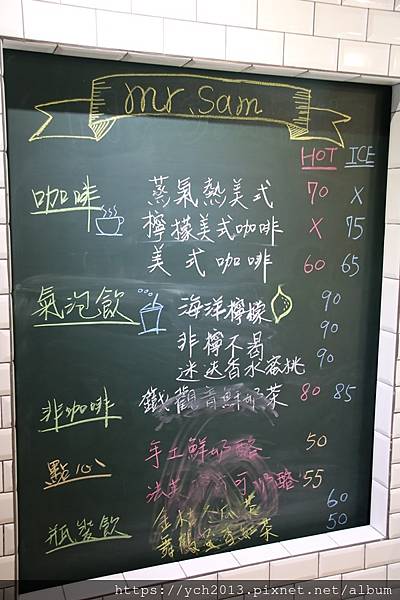 mr. Sam
HOT ICE
咖啡 蒸氣熱美式 70 X
檸檬美式咖啡 X 75
美式咖啡 60 65
氣泡飲 海洋檸檬 90
非檸不渴 90
迷迭香水蜜桃 90
非咖啡 鐵觀音鮮奶茶 80 85
點心 手工鮮奶酪 50
法 可 酪 55
瓶裝飲 60
50
https://ych2013.pixnet.net/album